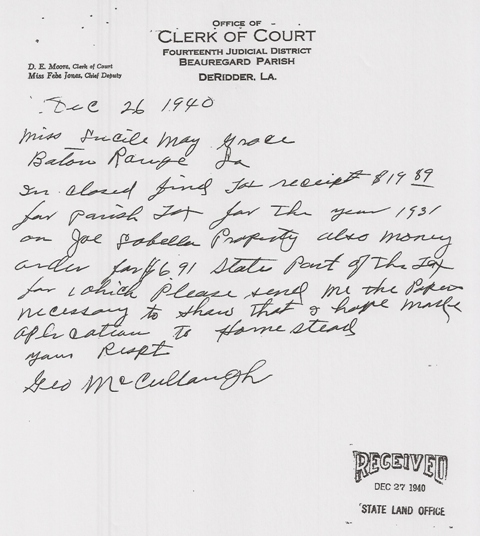 OFFICE OF
CLERK OF COURT
FOURTEENTH JUDICIAL DISTRICT
BEAUREGARD PARISH
DERIDDER, LA.
D. E. Moore, Clerk of Court
Miss Febe Jones, Chief Deputy
Dec 26 1940
Miss Lucile May Grace
Baton Rouge La
In closed find Tax receipt $19 89
for Parish Tax for The year 1931
on Joe Sabella Property also money
order for $6 91 State Part of The Tax
for which Please send me the Papers
necessary to Show that I have made
aplication to Homestead
your Respt
Geo McCullaugh
RECEIVED
DEC 27 1940
STATE LAND OFFICE